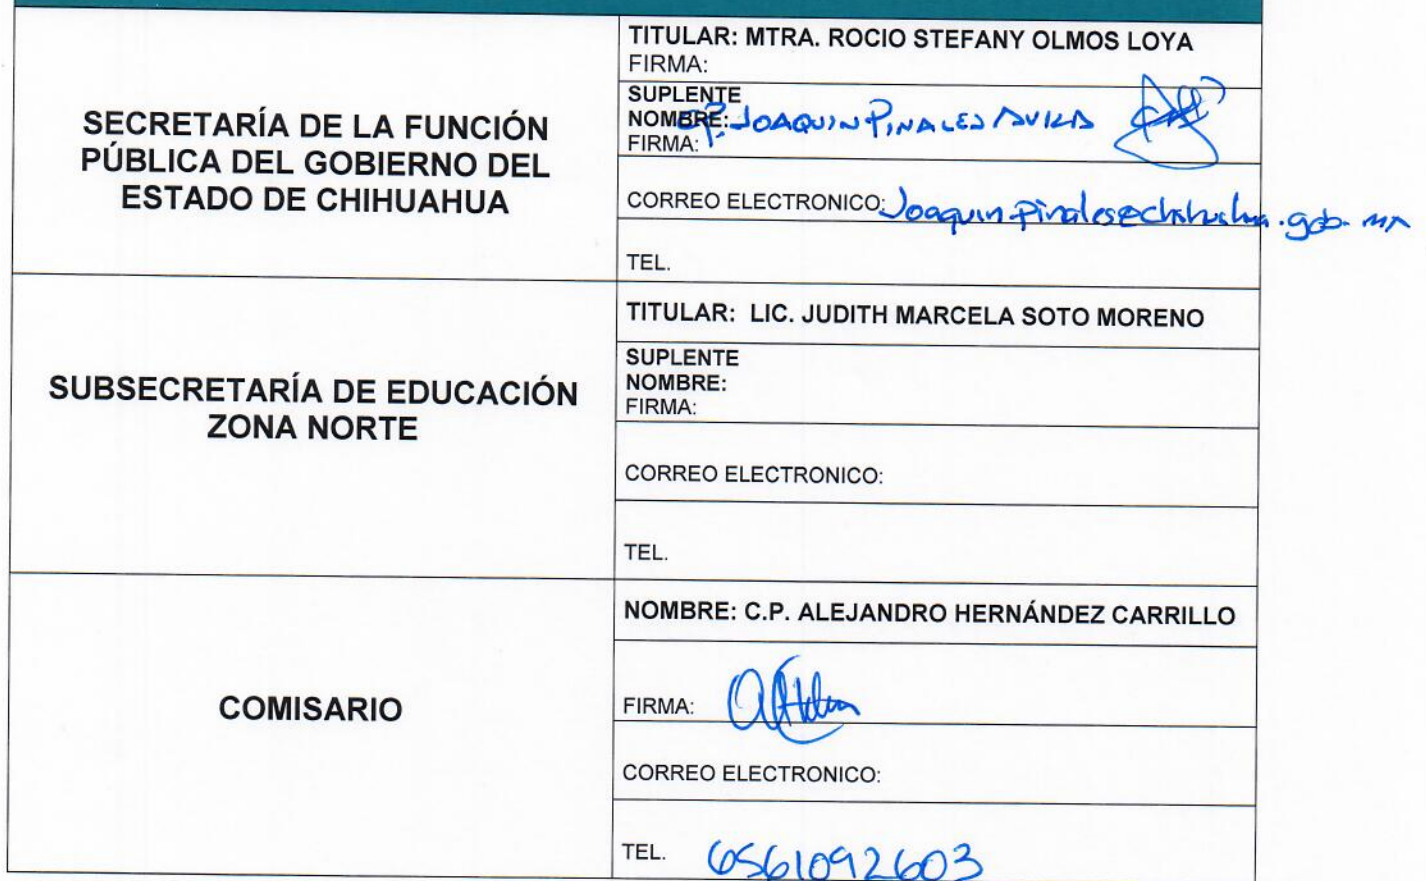 SECRETARÍA DE LA FUNCIÓN
PÚBLICA DEL GOBIERNO DEL
ESTADO DE CHIHUAHUA
TITULAR: MTRA. ROCIO STEFANY OLMOS LOYA
FIRMA:
SUPLENTE
NOMBRE: CP. JOAQUIN PINALES AVILA
FIRMA:
CORREO ELECTRONICO: Joaquin.Pinales@chihuahua.gob.mx
TEL.
SUBSECRETARÍA DE EDUCACIÓN
ZONA NORTE
TITULAR: LIC. JUDITH MARCELA SOTO MORENO
SUPLENTE
NOMBRE:
FIRMA:
CORREO ELECTRONICO:
TEL.
COMISARIO
NOMBRE: C.P. ALEJANDRO HERNÁNDEZ CARRILLO
FIRMA:
CORREO ELECTRONICO:
TEL. 6561092603